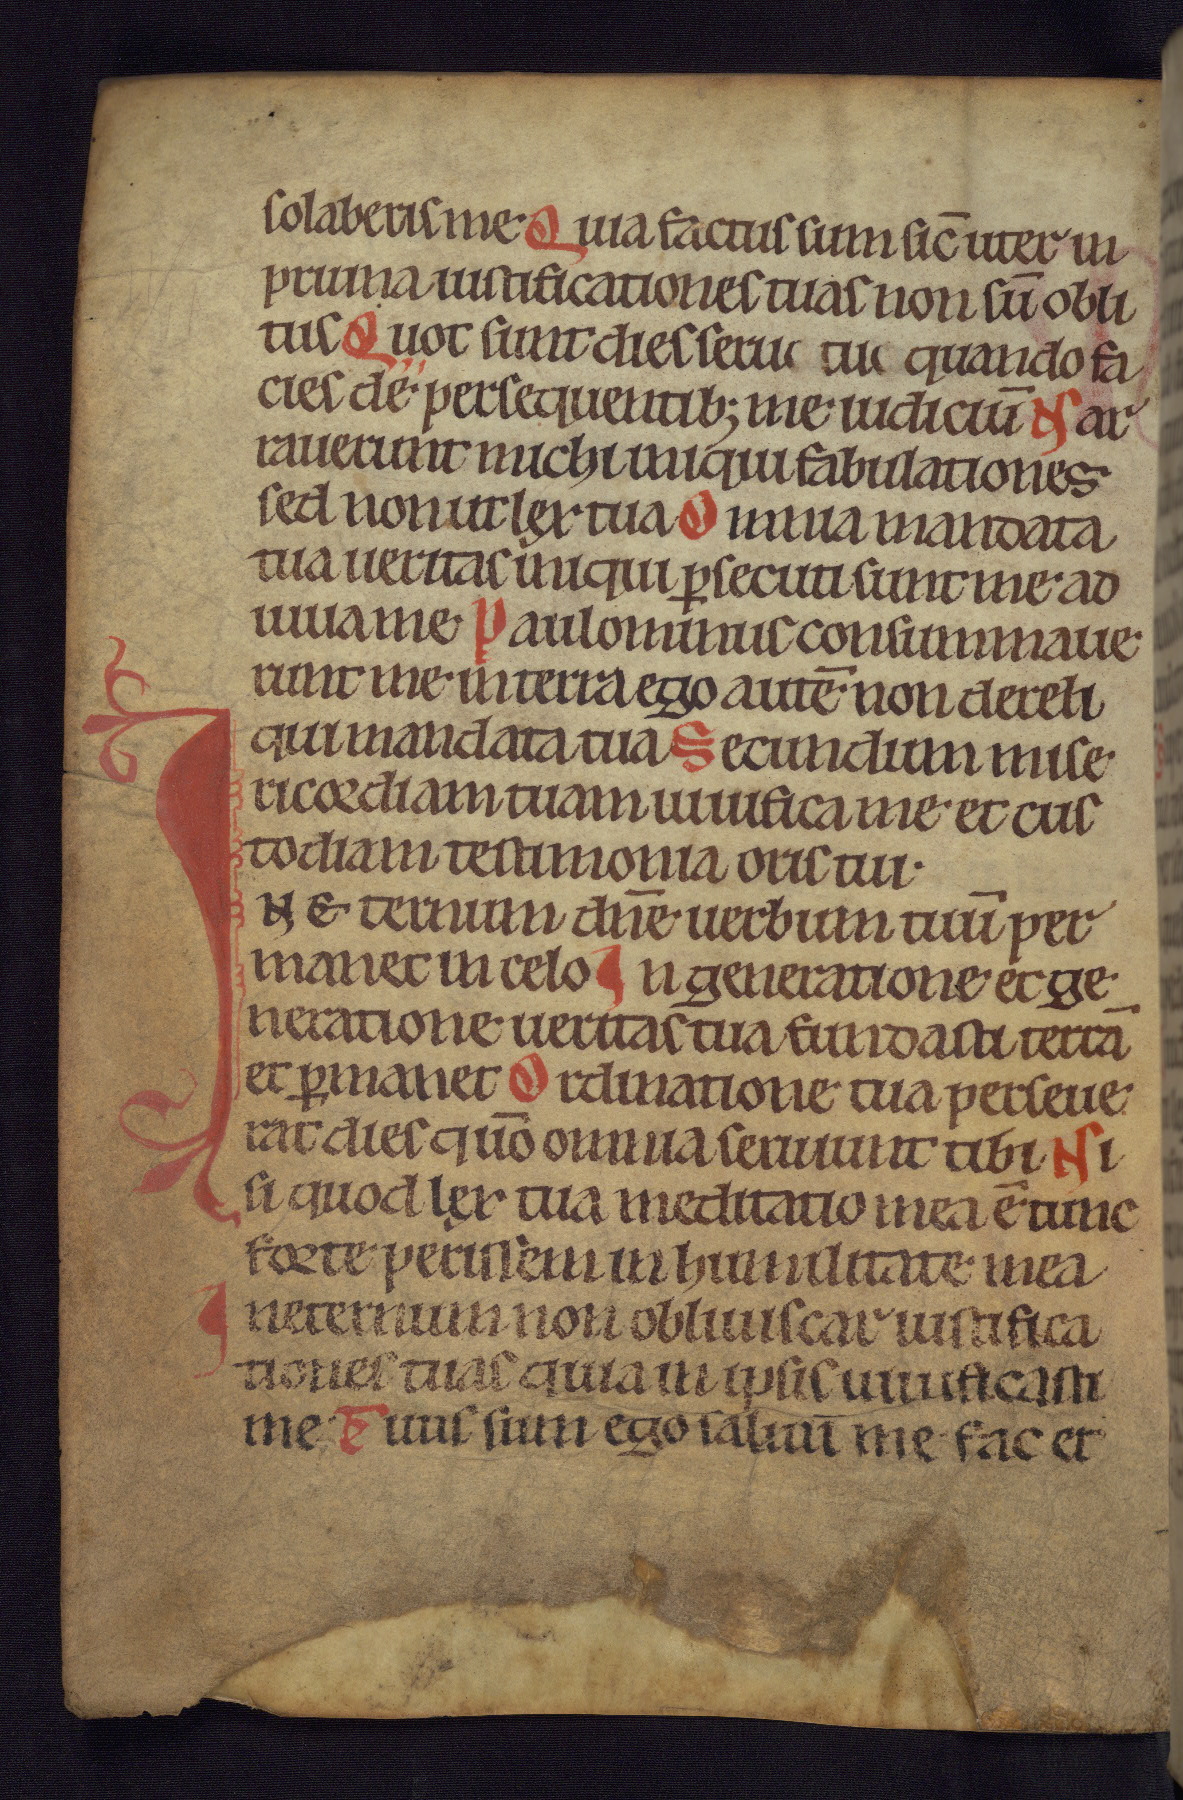 solaberis me Quia factus sum sic̄ uter in
pruina iustificationes tuas non sū obli
tus Quot sunt dies serui tui quando fa
cies de persequentib; me iudiciū Nar
rauerunt michi iniqui fabulationes
sed non ut lex tua Omnia mandata
tua ueritas iniqui ꝑsecuti sunt me ad
iuua me Paulominus consummaue
runt me in terra ego autē non dereli
qui mandata tua Secundum mise
ricordiam tuam uiuifica me et cus
todiam testimonia oris tui
IN Eternum dn̄e uerbum tuū per
manet in celo In generatione et ge
neratione ueritas tua fundasti terrā
et ꝑmanet Ordinatione tua perseue
rat dies quō omnia seruiunt tibi Ni
si quod lex tua meditatio mea ē tunc
forte perissem in humilitate mea
In eternum non obliuiscar iustifica
tiones tuas quia in ipsis uiuificasti
me Tuus sum ego saluū me fac et